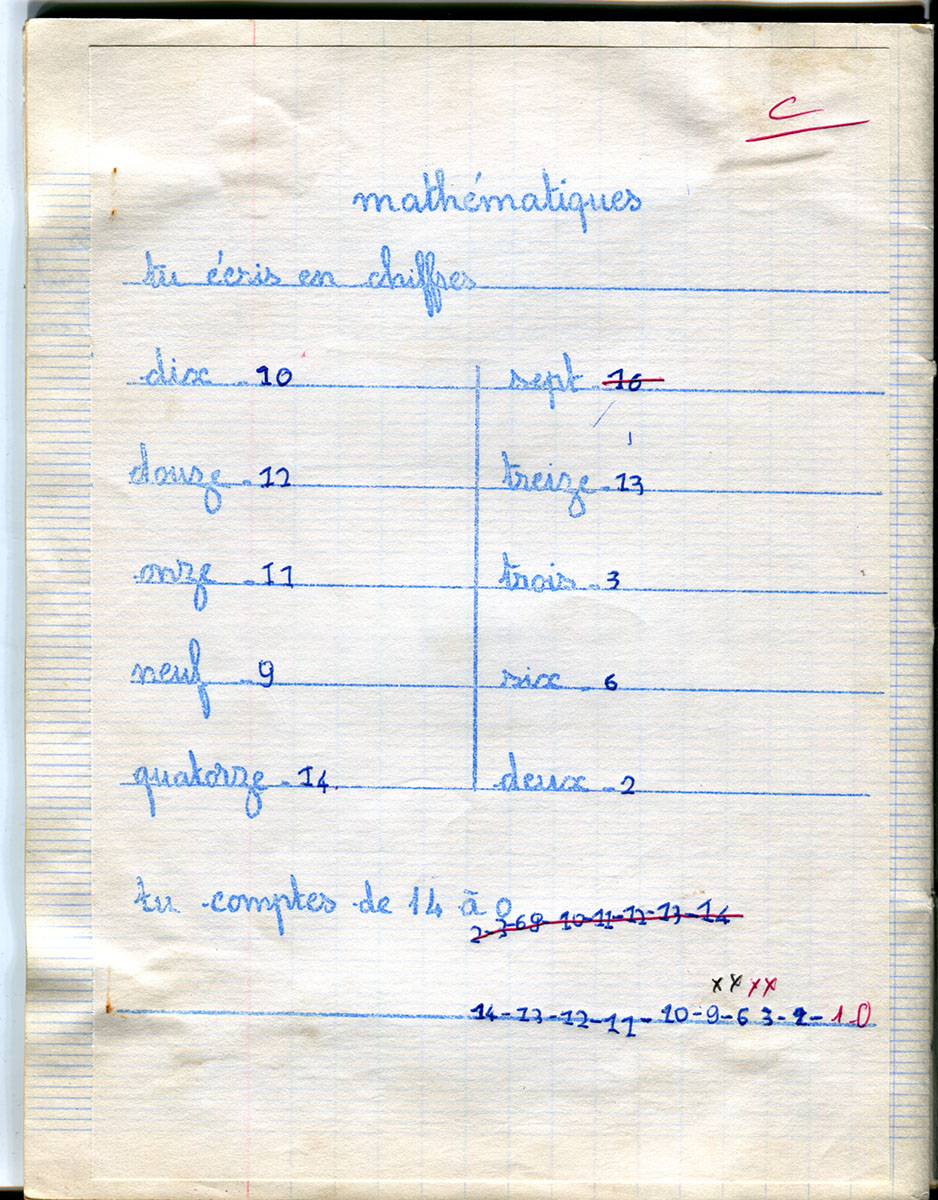 C
mathématiques
tu écris en chiffres
dix - 10
sept - 16
douze - 12
treize - 13
onze - 11
trois - 3
neuf - 9
six - 6
quatorze - 14
deux - 2
tu comptes de 14 à 0
2-3-69-10-11-12-13-14
xxxx
14-13-12-11-10-9-6 3-2-1-0